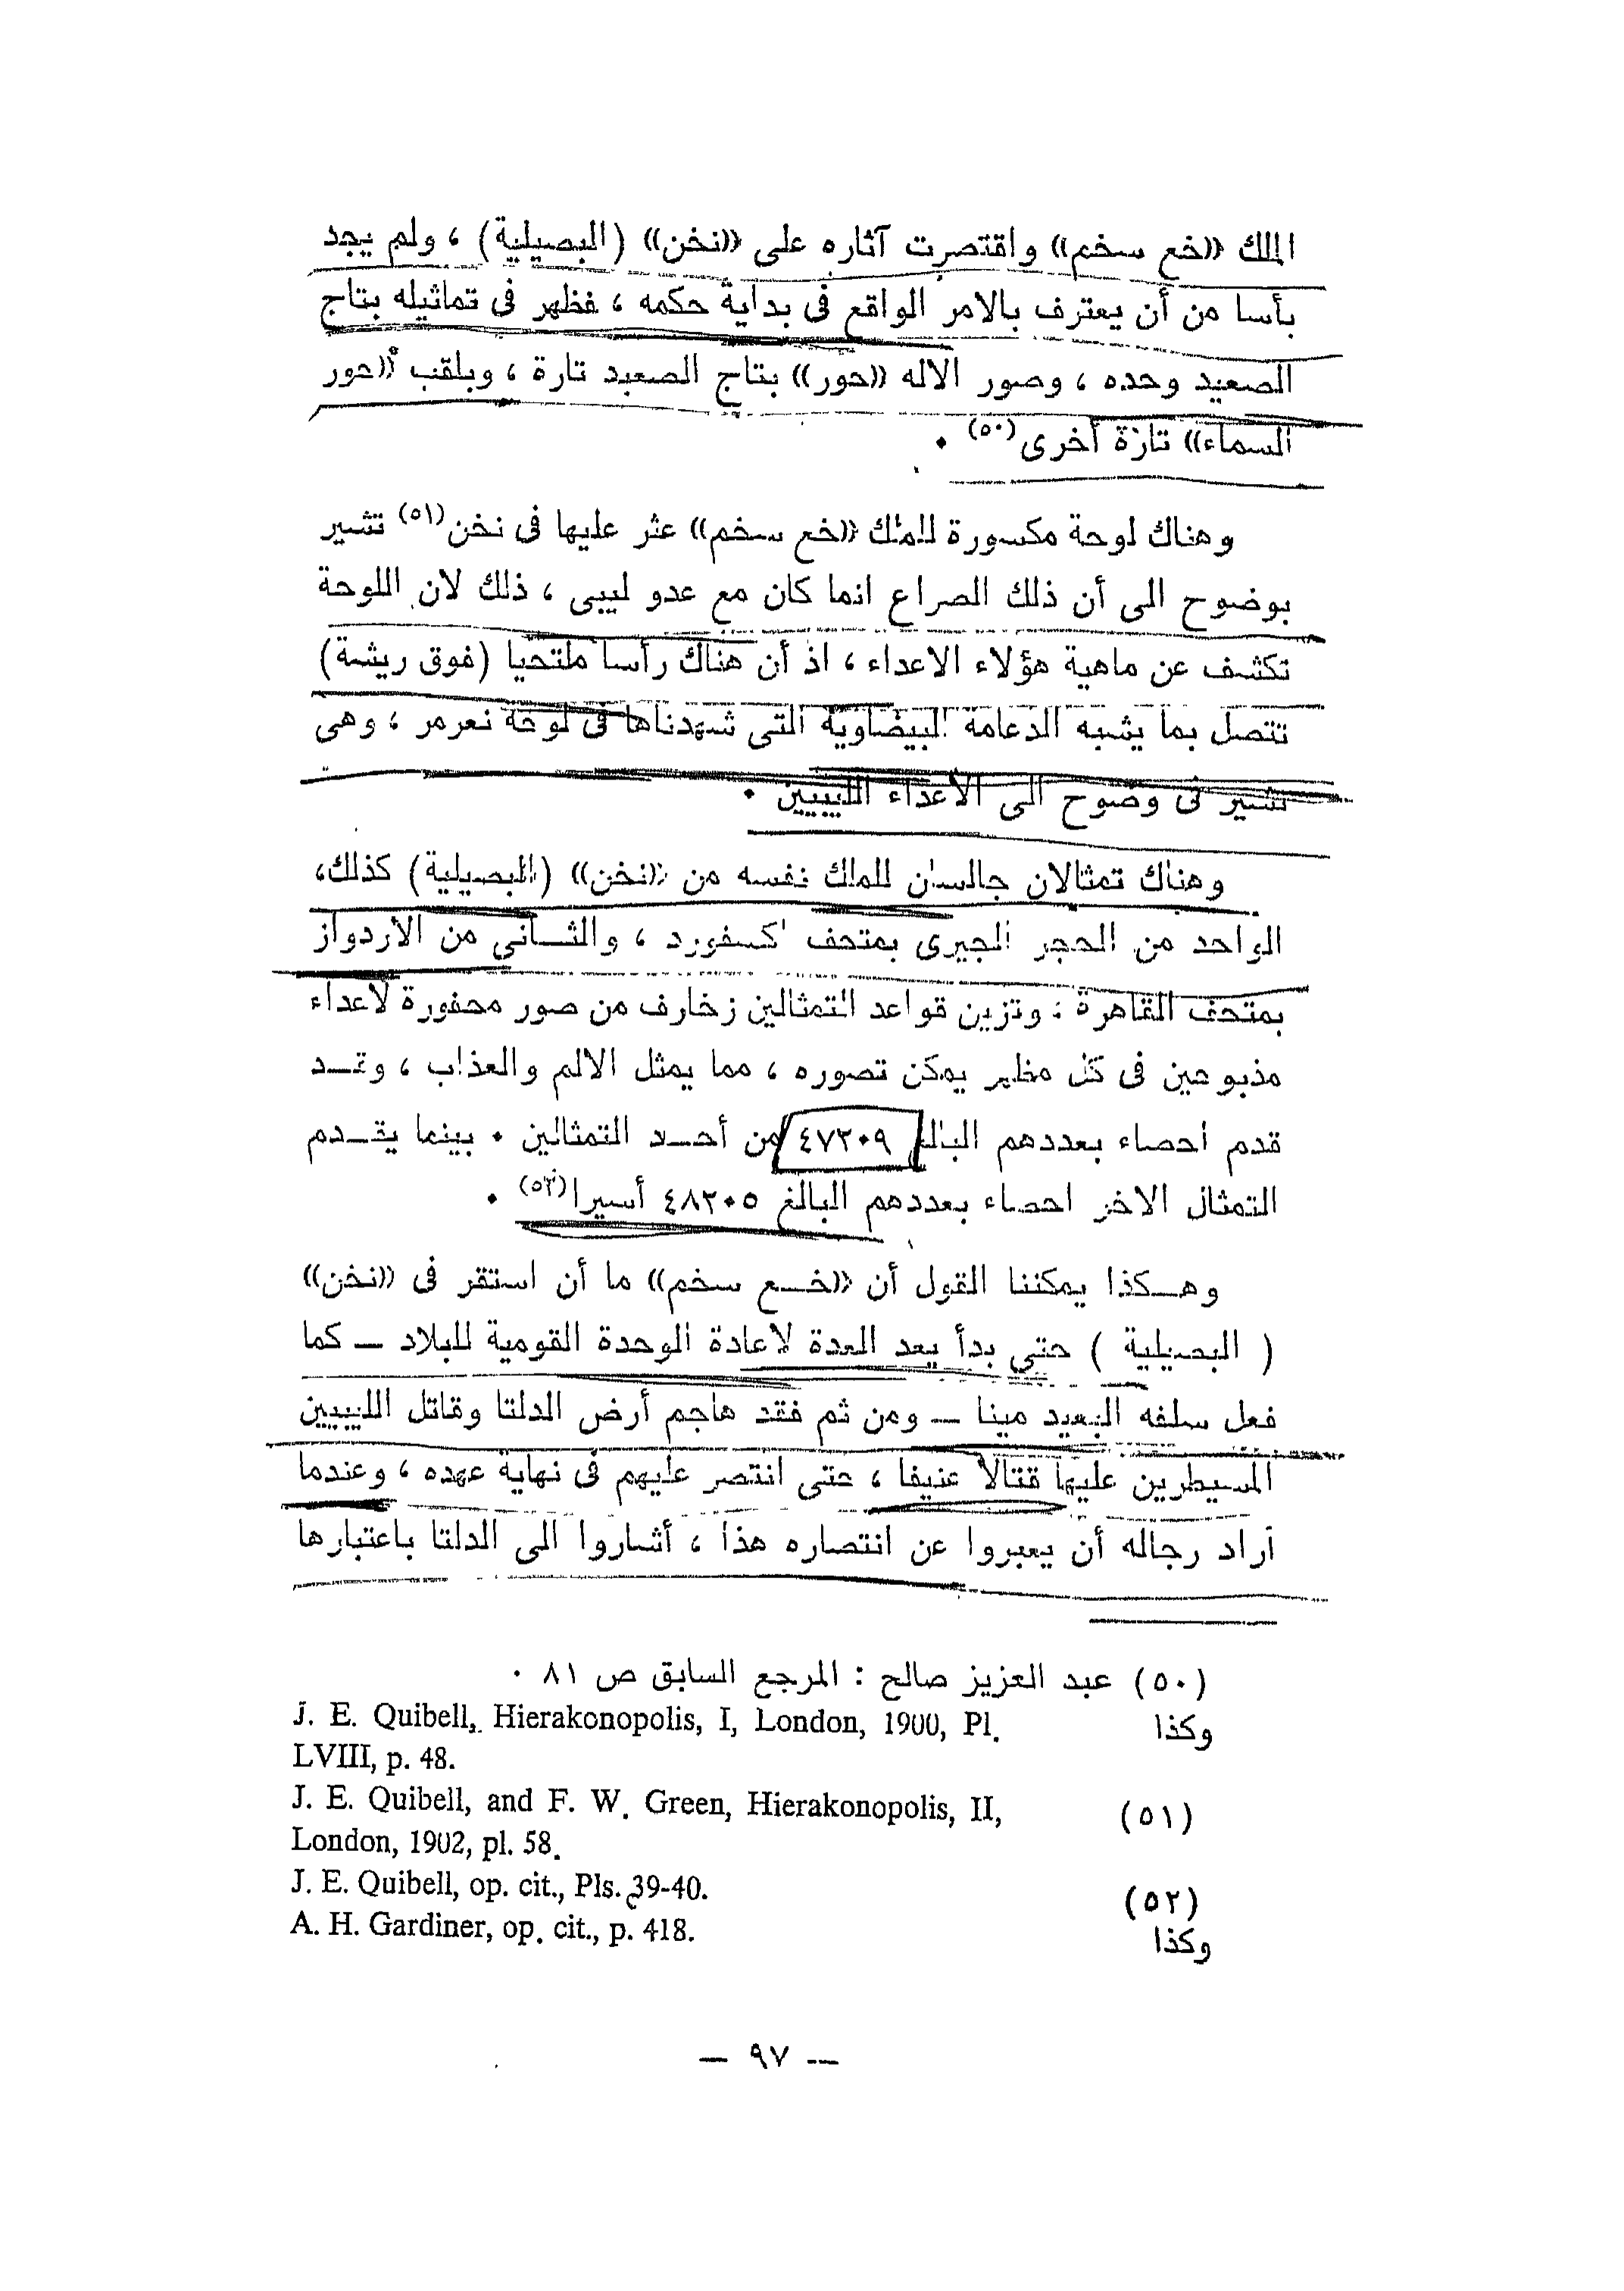 الملك «خع سخم» واقتصرت آثاره على «نخن» (البصيلية) ، ولم يجد
بأسا من أن يعترف بالامر الواقع فى بداية حكمه ، فظهر فى تماثيله بتاج
الصعيد وحده ، وصور الاله «حور» بتاج الصعيد تارة ، وبلقب «حور
السماء» تارة أخرى(٥٠) ٠
وهناك لوحة مكسورة للملك «خع سخم» عثر عليها فى نخن(٥١) تشير
بوضوح الى أن ذلك الصراع انما كان مع عدو ليبى ، ذلك لان اللوحة
تكشف عن ماهية هؤلاء الاعداء ، اذ أن هناك رأسا ملتحيا (فوق ريشة)
تتصل بما يشبه الدعامة البيضاوية التى شهدناها فى لوحة نعرمر ، وهى
تشير فى وضوح الى الأعداء الليبيين ٠
وهناك تمثالان جالسان للملك نفسه من «نخن» (البصيلية) كذلك،
الواحد من الحجر الجيرى بمتحف اكسفورد ، والثــانى من الاردواز
بمتحف القاهرة ، وتزين قواعد التمثالين زخارف من صور محفورة لأعداء
مذبوحين فى كل مظهر يمكن تصوره ، مما يمثل الالم والعذاب ، وقــد
قدم احصاء بعددهم البالغ ٤٧٢٠٩ من أحــد التمثالين ٠ بينما يقــدم
التمثال الاخر احصاء بعددهم البالغ ٤٨٢٠٥ أسيرا(٥٢) ٠
وهــكذا يمكننا القول أن «خــع سخم» ما أن استقر فى «نخن»
( البصيلية ) حتى بدأ يعد العدة لاعادة الوحدة القومية للبلاد — كما
فعل سلفه البعيد مينا — ومن ثم فقد هاجم أرض الدلتا وقاتل الليبيين
المسيطرين عليها قتالا عنيفا ، حتى انتصر عليهم فى نهاية عهده ، وعندما
أراد رجاله أن يعبروا عن انتصاره هذا ، أشاروا الى الدلتا باعتبارها
(٥٠) عبد العزيز صالح : المرجع السابق ص ٨١ ٠
وكذا J. E. Quibell, Hierakonopolis, I, London, 1900, Pl.
LVIII, p. 48.
(٥١) J. E. Quibell, and F. W. Green, Hierakonopolis, II,
London, 1902, pl. 58.
(٥٢) J. E. Quibell, op. cit., Pls. 39-40.
وكذا A. H. Gardiner, op. cit., p. 418.
— ٩٧ —